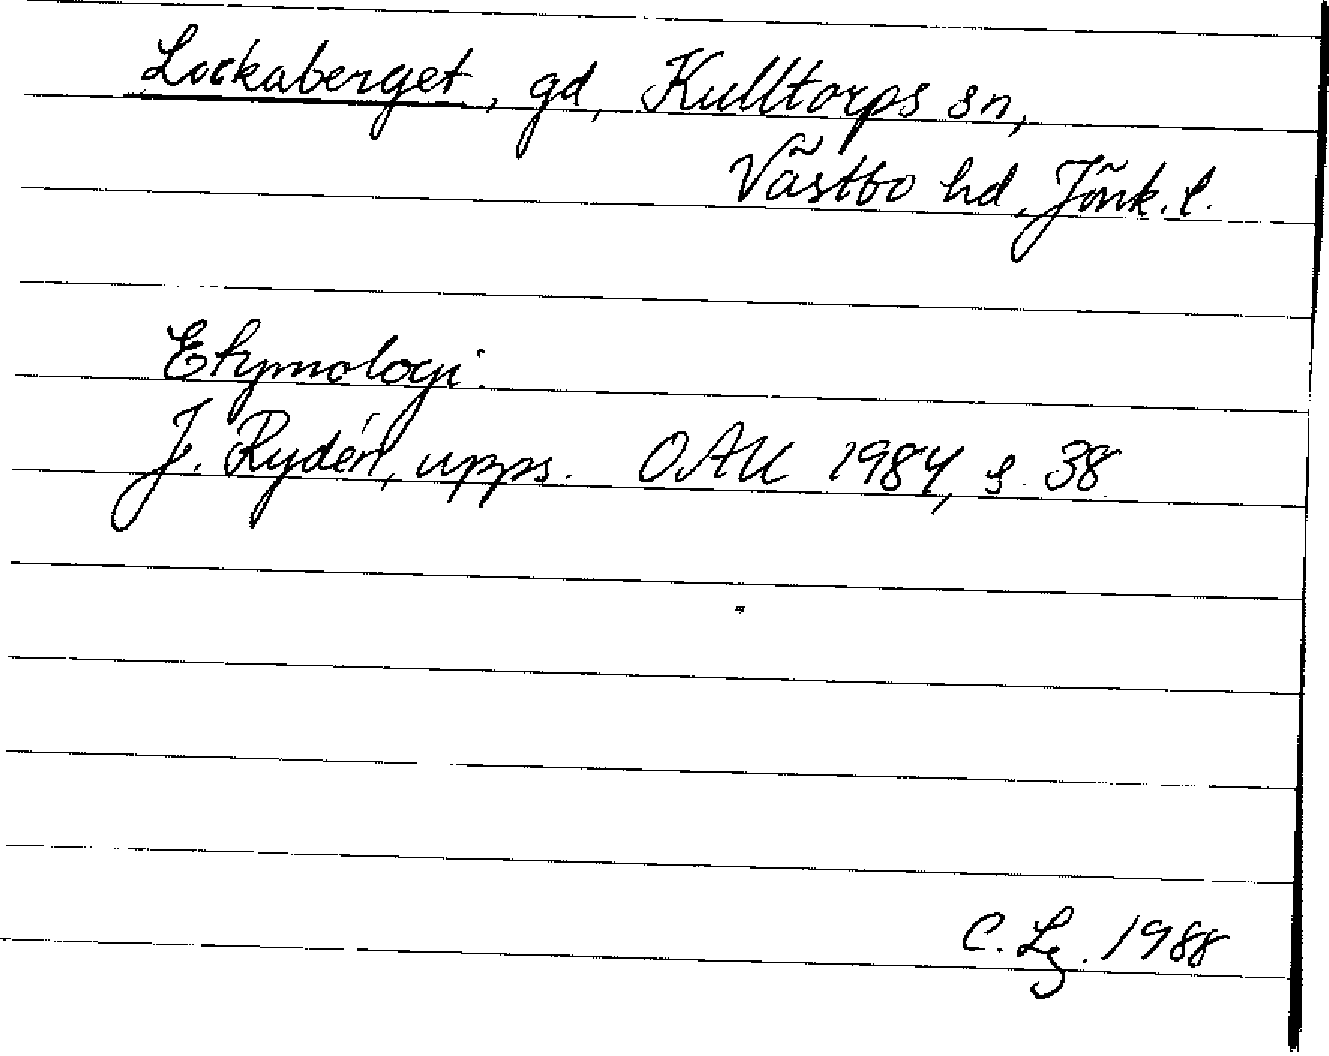 Lockaberget, gd, Kulltorps sn,
Västbo hd, Jönk. l.
Etymologi:
J. Rydén, upps. OAU 1984, s. 38
C. Lg. 1988